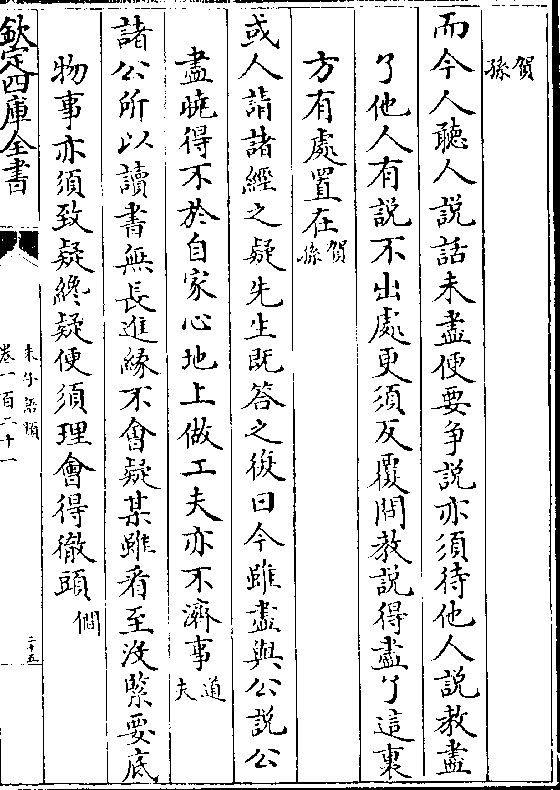 賀孫
而今人聽人説話未盡便要争説亦須待他人説教盡
了他人有説不出處更須反覆問教説得盡了這裏
方有處置在賀孫
或人請諸經之疑先生既答之復曰今雖盡與公説公
盡曉得不於自家心地上做工夫亦不濟事道夫
諸公所以讀書無長進緣不會疑某雖看至没緊要底
物事亦須致疑終疑便須理會得徹頭僩
欽定四庫全書
朱子語類
卷一百二十一
二十五